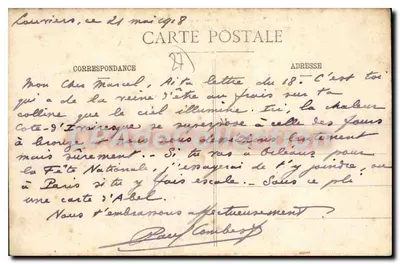 Louviers, ce 21 mai 1918
CARTE POSTALE
CORRESPONDANCE
ADRESSE
Mon Cher Marcel, Ai ta lettre du 18. C'est toi
qui a de la veine d'être au frais sur ta
colline que le ciel illumine. Ici, la chaleur
se superpose à celle des fours
à
mais sûrement. - Si tu vas à Orléans pour
la Fête Nationale, j'essayerai de t'y joindre, ou
à Paris si tu y fais escale. - Sous ce pli
une carte d'Abel.
Nous t'embrassons affectueusement